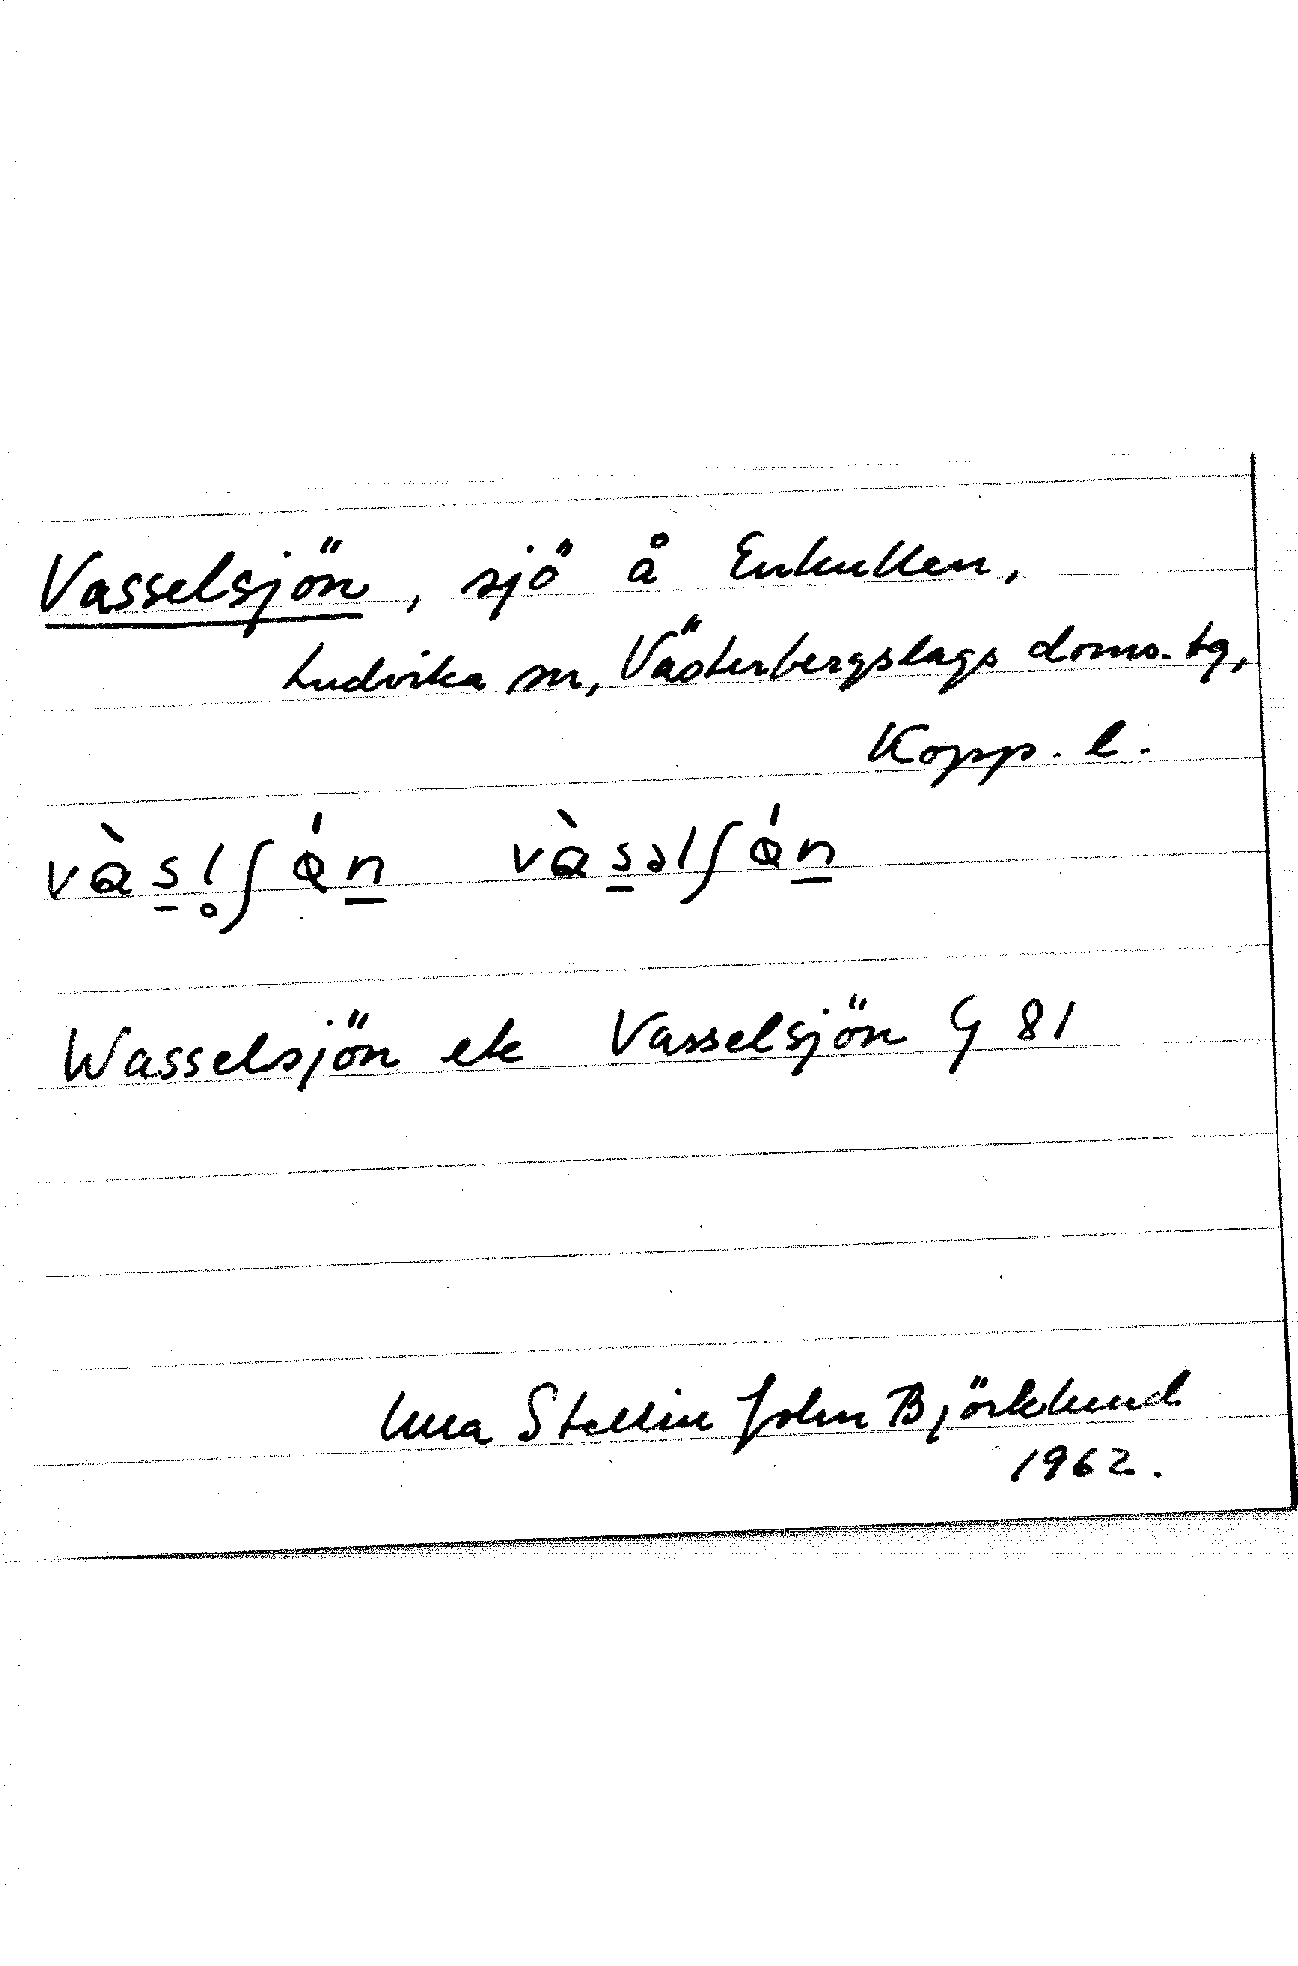 Vasselsjön, sjö å Enkullen,
Ludvika sn, Västerbergslags doms. tg,
Kopp. l.
vàs̲l̥ʃǿn̲ vàs̲əlʃǿn̲
Wasselsjön ek Vasselsjön G 81
Stellin John Björklund
1962.